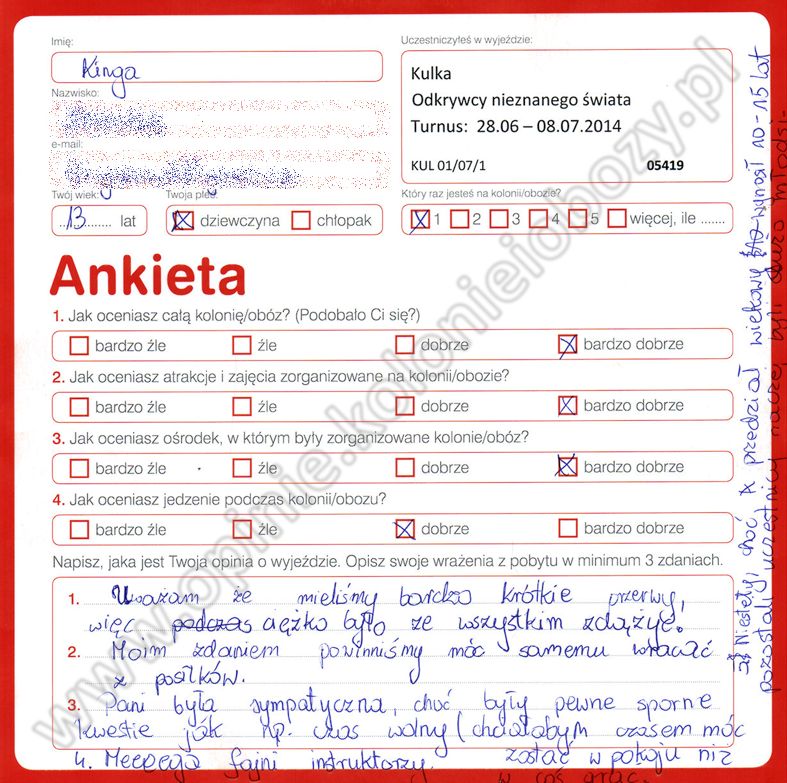 Imię:
Kinga
Nazwisko:
e-mail:
Twój wiek:
13 lat
Twoja płeć:
dziewczyna chłopak
Uczestniczyłeś w wyjeździe:
Kulka
Odkrywcy nieznanego świata
Turnus: 28.06 – 08.07.2014
KUL 01/07/1 05419
Który raz jesteś na kolonii/obozie?
1 2 3 4 5 więcej, ile .......
Ankieta
1. Jak oceniasz całą kolonię/obóz? (Podobało Ci się?)
bardzo źle źle dobrze bardzo dobrze
2. Jak oceniasz atrakcje i zajęcia zorganizowane na kolonii/obozie?
bardzo źle źle dobrze bardzo dobrze
3. Jak oceniasz ośrodek, w którym były zorganizowane kolonie/obóz?
bardzo źle źle dobrze bardzo dobrze
4. Jak oceniasz jedzenie podczas kolonii/obozu?
bardzo źle źle dobrze bardzo dobrze
Napisz, jaka jest Twoja opinia o wyjeździe. Opisz swoje wrażenia z pobytu w minimum 3 zdaniach.
1. Uważam że mieliśmy bardzo krótkie przerwy,
więc podczas ciężko było ze wszystkim zdążyć.
2. Moim zdaniem powinniśmy móc samemu wracać
z posiłków.
3. Pani była sympatyczna, choć były pewne sporne
kwestie jak np. czas wolny (chciałabym czasem móc
zostać w pokoju niż
w coś grać.
4. Meeeega fajni instruktorzy.
Niestety, choć przedział wiekowy wynosił 10-15 lat
pozostali uczestnicy raczej byli dużo młodsi
www.opinie.kolonieiobozy.pl